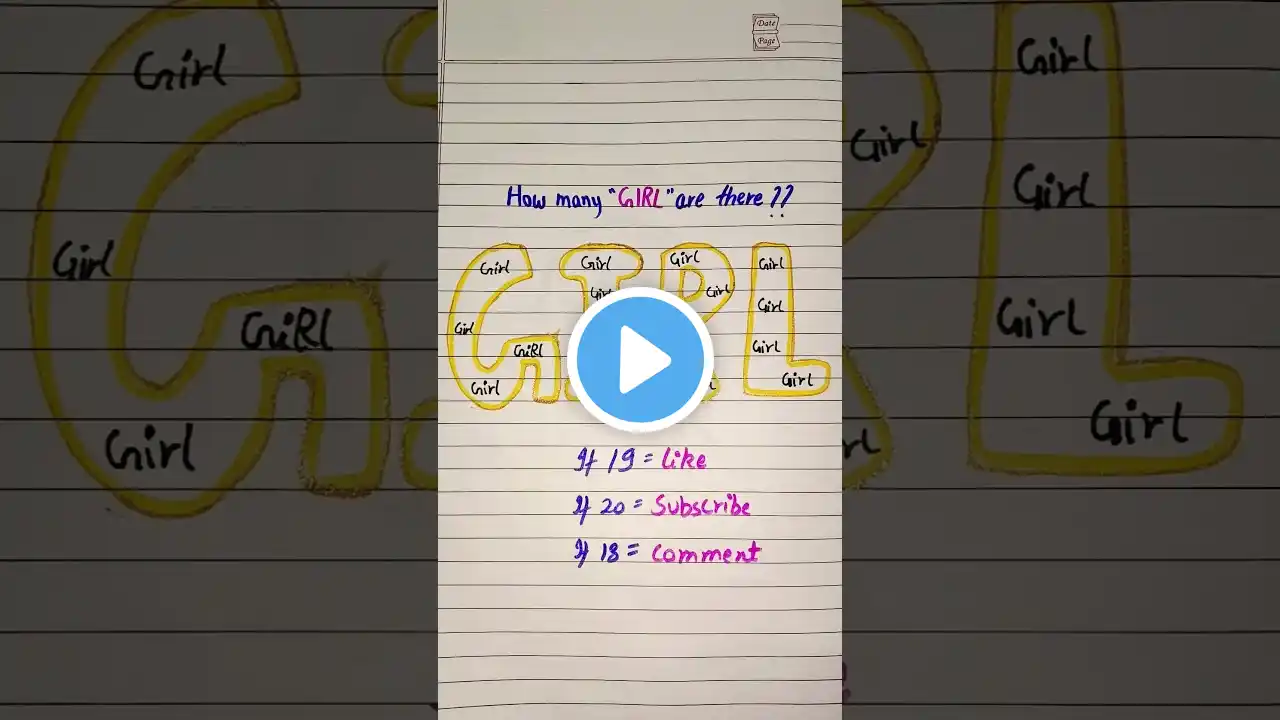 Date
Page
How many "GIRL" are there??
Girl Girl Girl Girl
Girl Girl
Girl Girl
Girl GiRL Girl
Girl Girl
If 19 = Like
If 20 = Subscribe
If 18 = Comment
Girl Girl
Girl
Girl Girl
GiRL Girl
Girl Girl